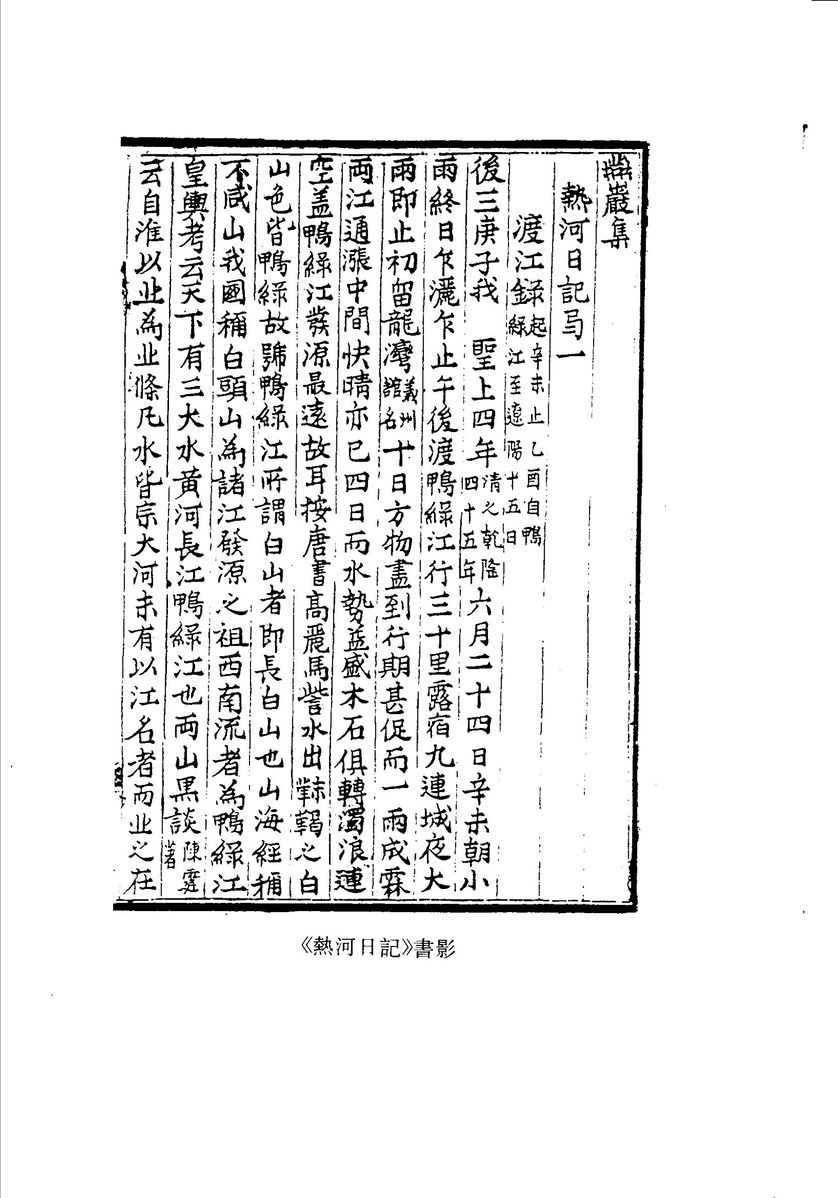 燕巖集
熱河日記弓一
渡江錄起辛未止乙酉自鴨綠江至遼陽十五日
後三庚子我 聖上四年清之乾隆四十五年六月二十四日辛未朝小
雨終日乍灑乍止午後渡鴨綠江行三十里露宿九連城夜大
雨即止初留龍灣義州舘名十日方物盡到行期甚促而一雨成霖
兩江通漲中間快晴亦已四日而水勢益盛木石俱轉濁浪連
空盖鴨綠江發源最遠故耳按唐書高麗馬訾水出靺鞨之白
山色皆鴨綠故號鴨綠江所謂白山者即長白山也山海經稱
不咸山我國稱白頭山為諸江發源之祖西南流者為鴨綠江
皇輿考云天下有三大水黄河長江鴨綠江也兩山黒談陳霆著
云自淮以北為北條凡水皆宗大河未有以江名者而北之在
《熱河日記》書影